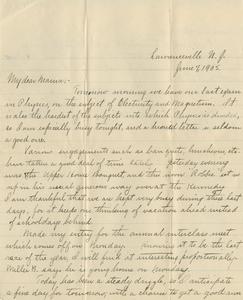 Lawrenceville N. J.
June 7, 1905
My dear Mamma:-
Tomorrow morning we have our last exam
in Physics, on the subject of Electricity and Magnetism. It
is also the hardest of the subjects into which Physics is divided,
so I am especially busy tonight, and a hurried letter is seldom
a good one.
Various engagements such as banquets, luncheons, etc.
have taken a good deal of time lately. Yesterday evening
was the Upper House Banquet and this noon
up in his usual generous way over at the Kennedy
I am thankful that we are kept very busy during these last
days, for it keeps one thinking of vacation ahead instead
of schooldays behind.
Made my entry for the annual interclass meet
which comes off on Monday. it to be the last
race of the year, I will at interesting proportionally
Wallie B. says he is going home on Monday.
Today has been a steady drizzle, so I anticipate
a fine day for tomorrow, with a chance to get a good